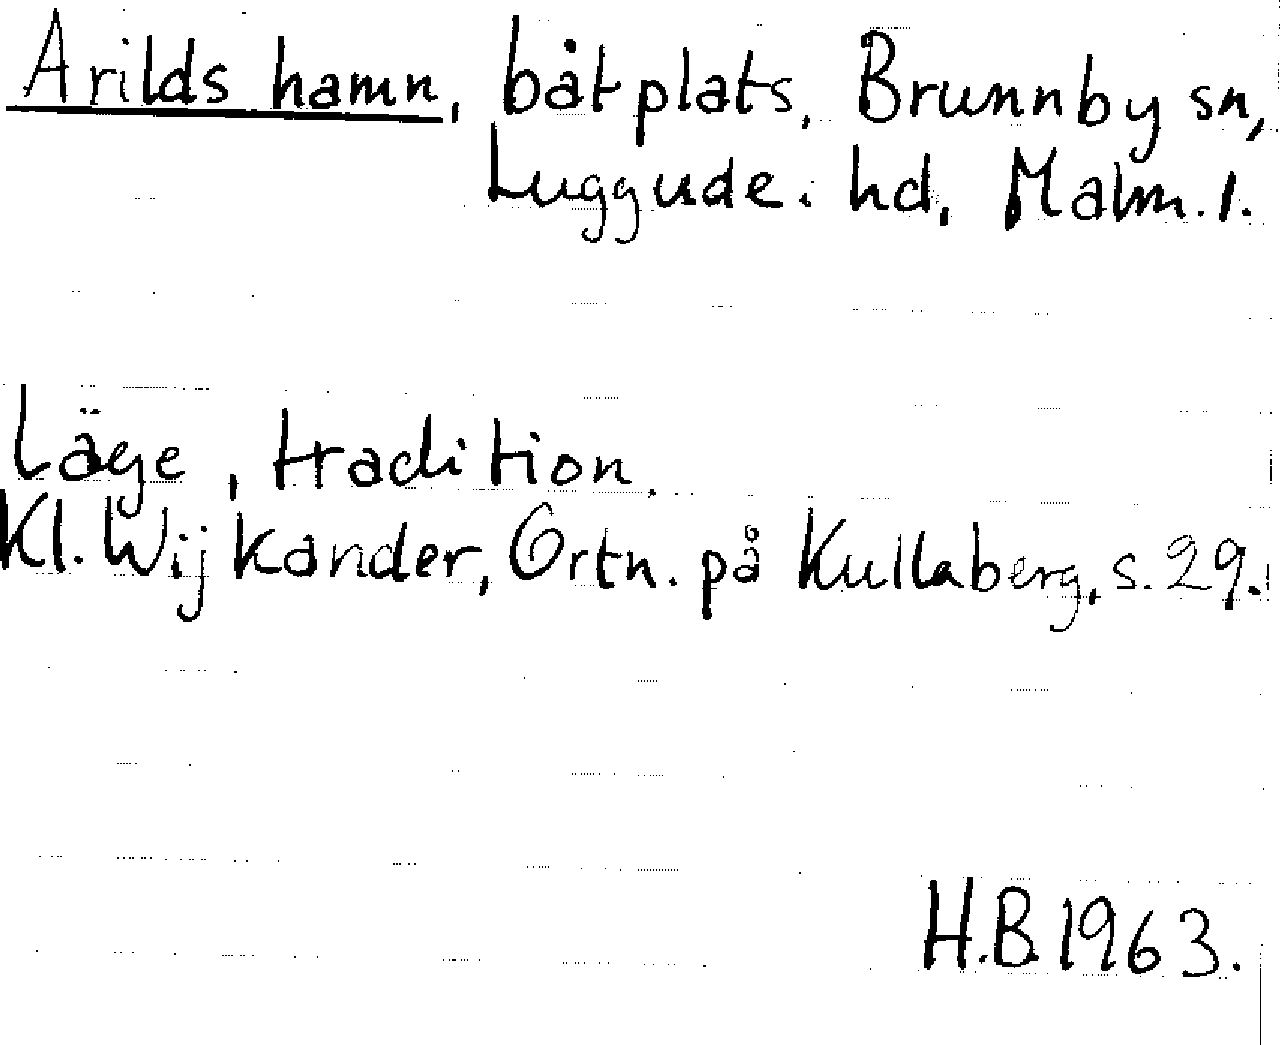 Arilds hamn, båtplats, Brunnby sn,
Luggude. hd, Malm. l.
Läge, tradition.
Kl. Wijkander, Ortn. på Kullaberg, s. 29.
H.B. 1963.